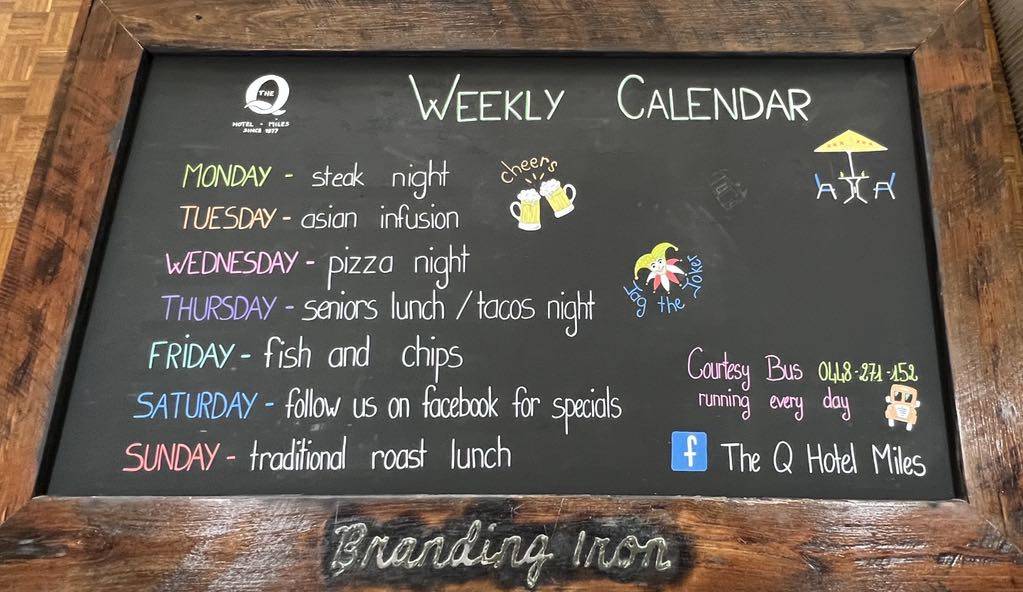 THE
Q
HOTEL - MILES
SINCE 1877
WEEKLY CALENDAR
MONDAY - steak night
cheers
TUESDAY - asian infusion
WEDNESDAY - pizza night
THURSDAY - seniors lunch / tacos night
Jag the Joker
FRIDAY - fish and chips
SATURDAY - follow us on facebook for specials
SUNDAY - traditional roast lunch
Courtesy Bus 0448-271-152
running every day
f The Q Hotel Miles
Branding Iron